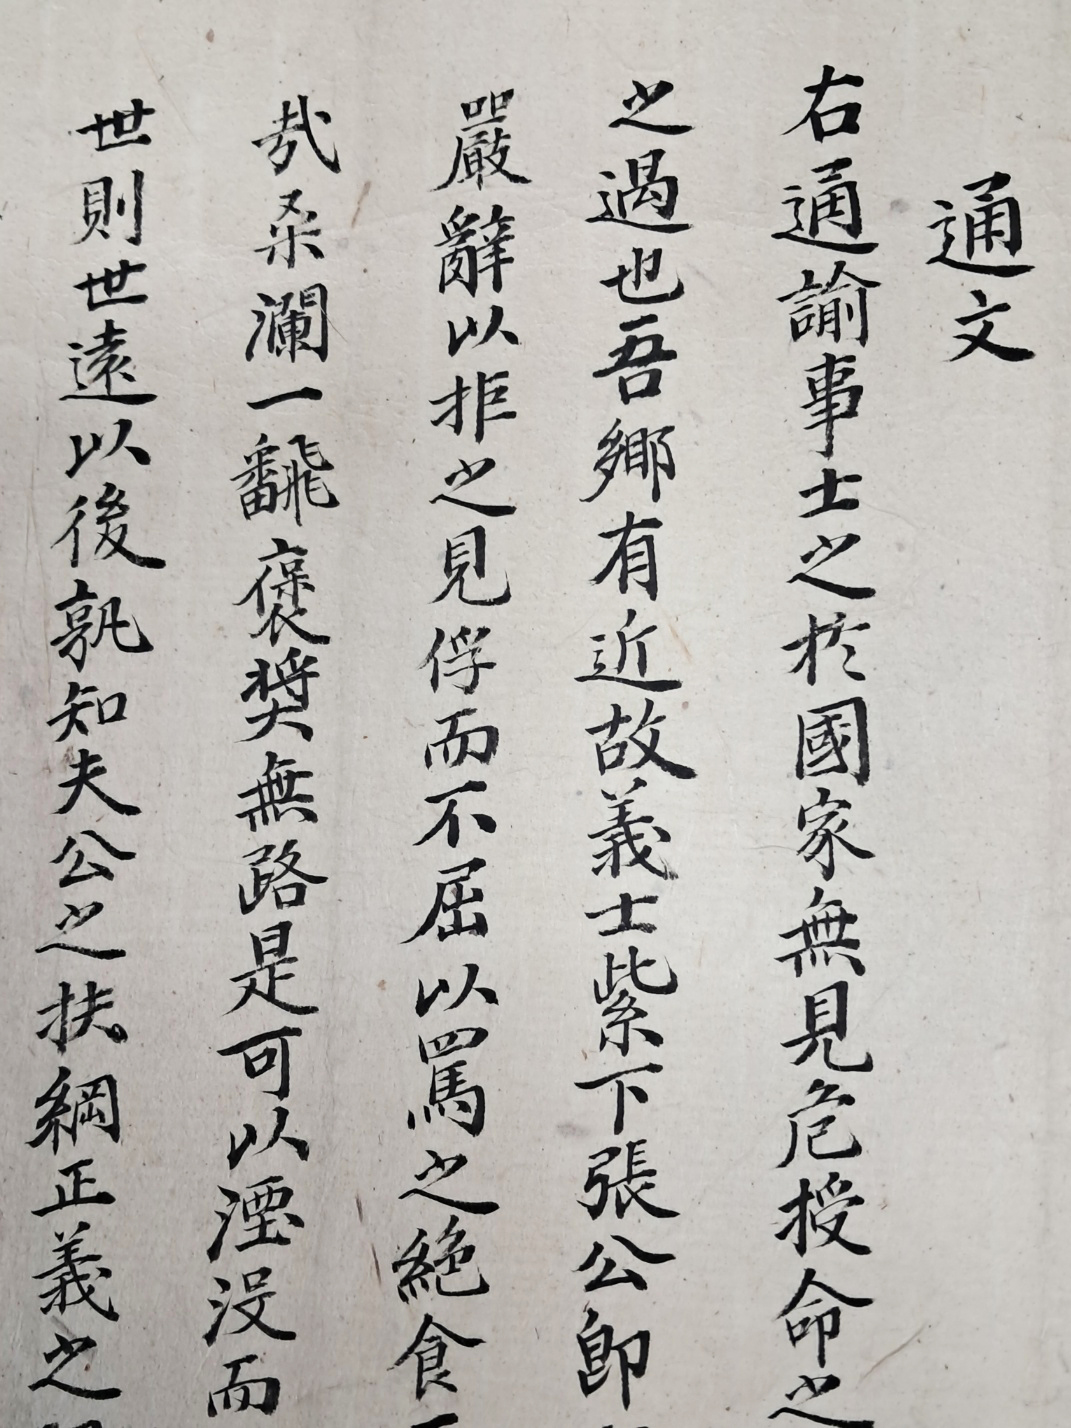 通文
右通諭事士之於國家無見危授命之
之過也吾鄉有近故義士紫下張公卽
嚴辭以拒之見俘而不屈以罵之絕食
哉桑瀾一飜褒奬無路是可以湮没而
世則世遠以後孰知夫公之扶綱正義之